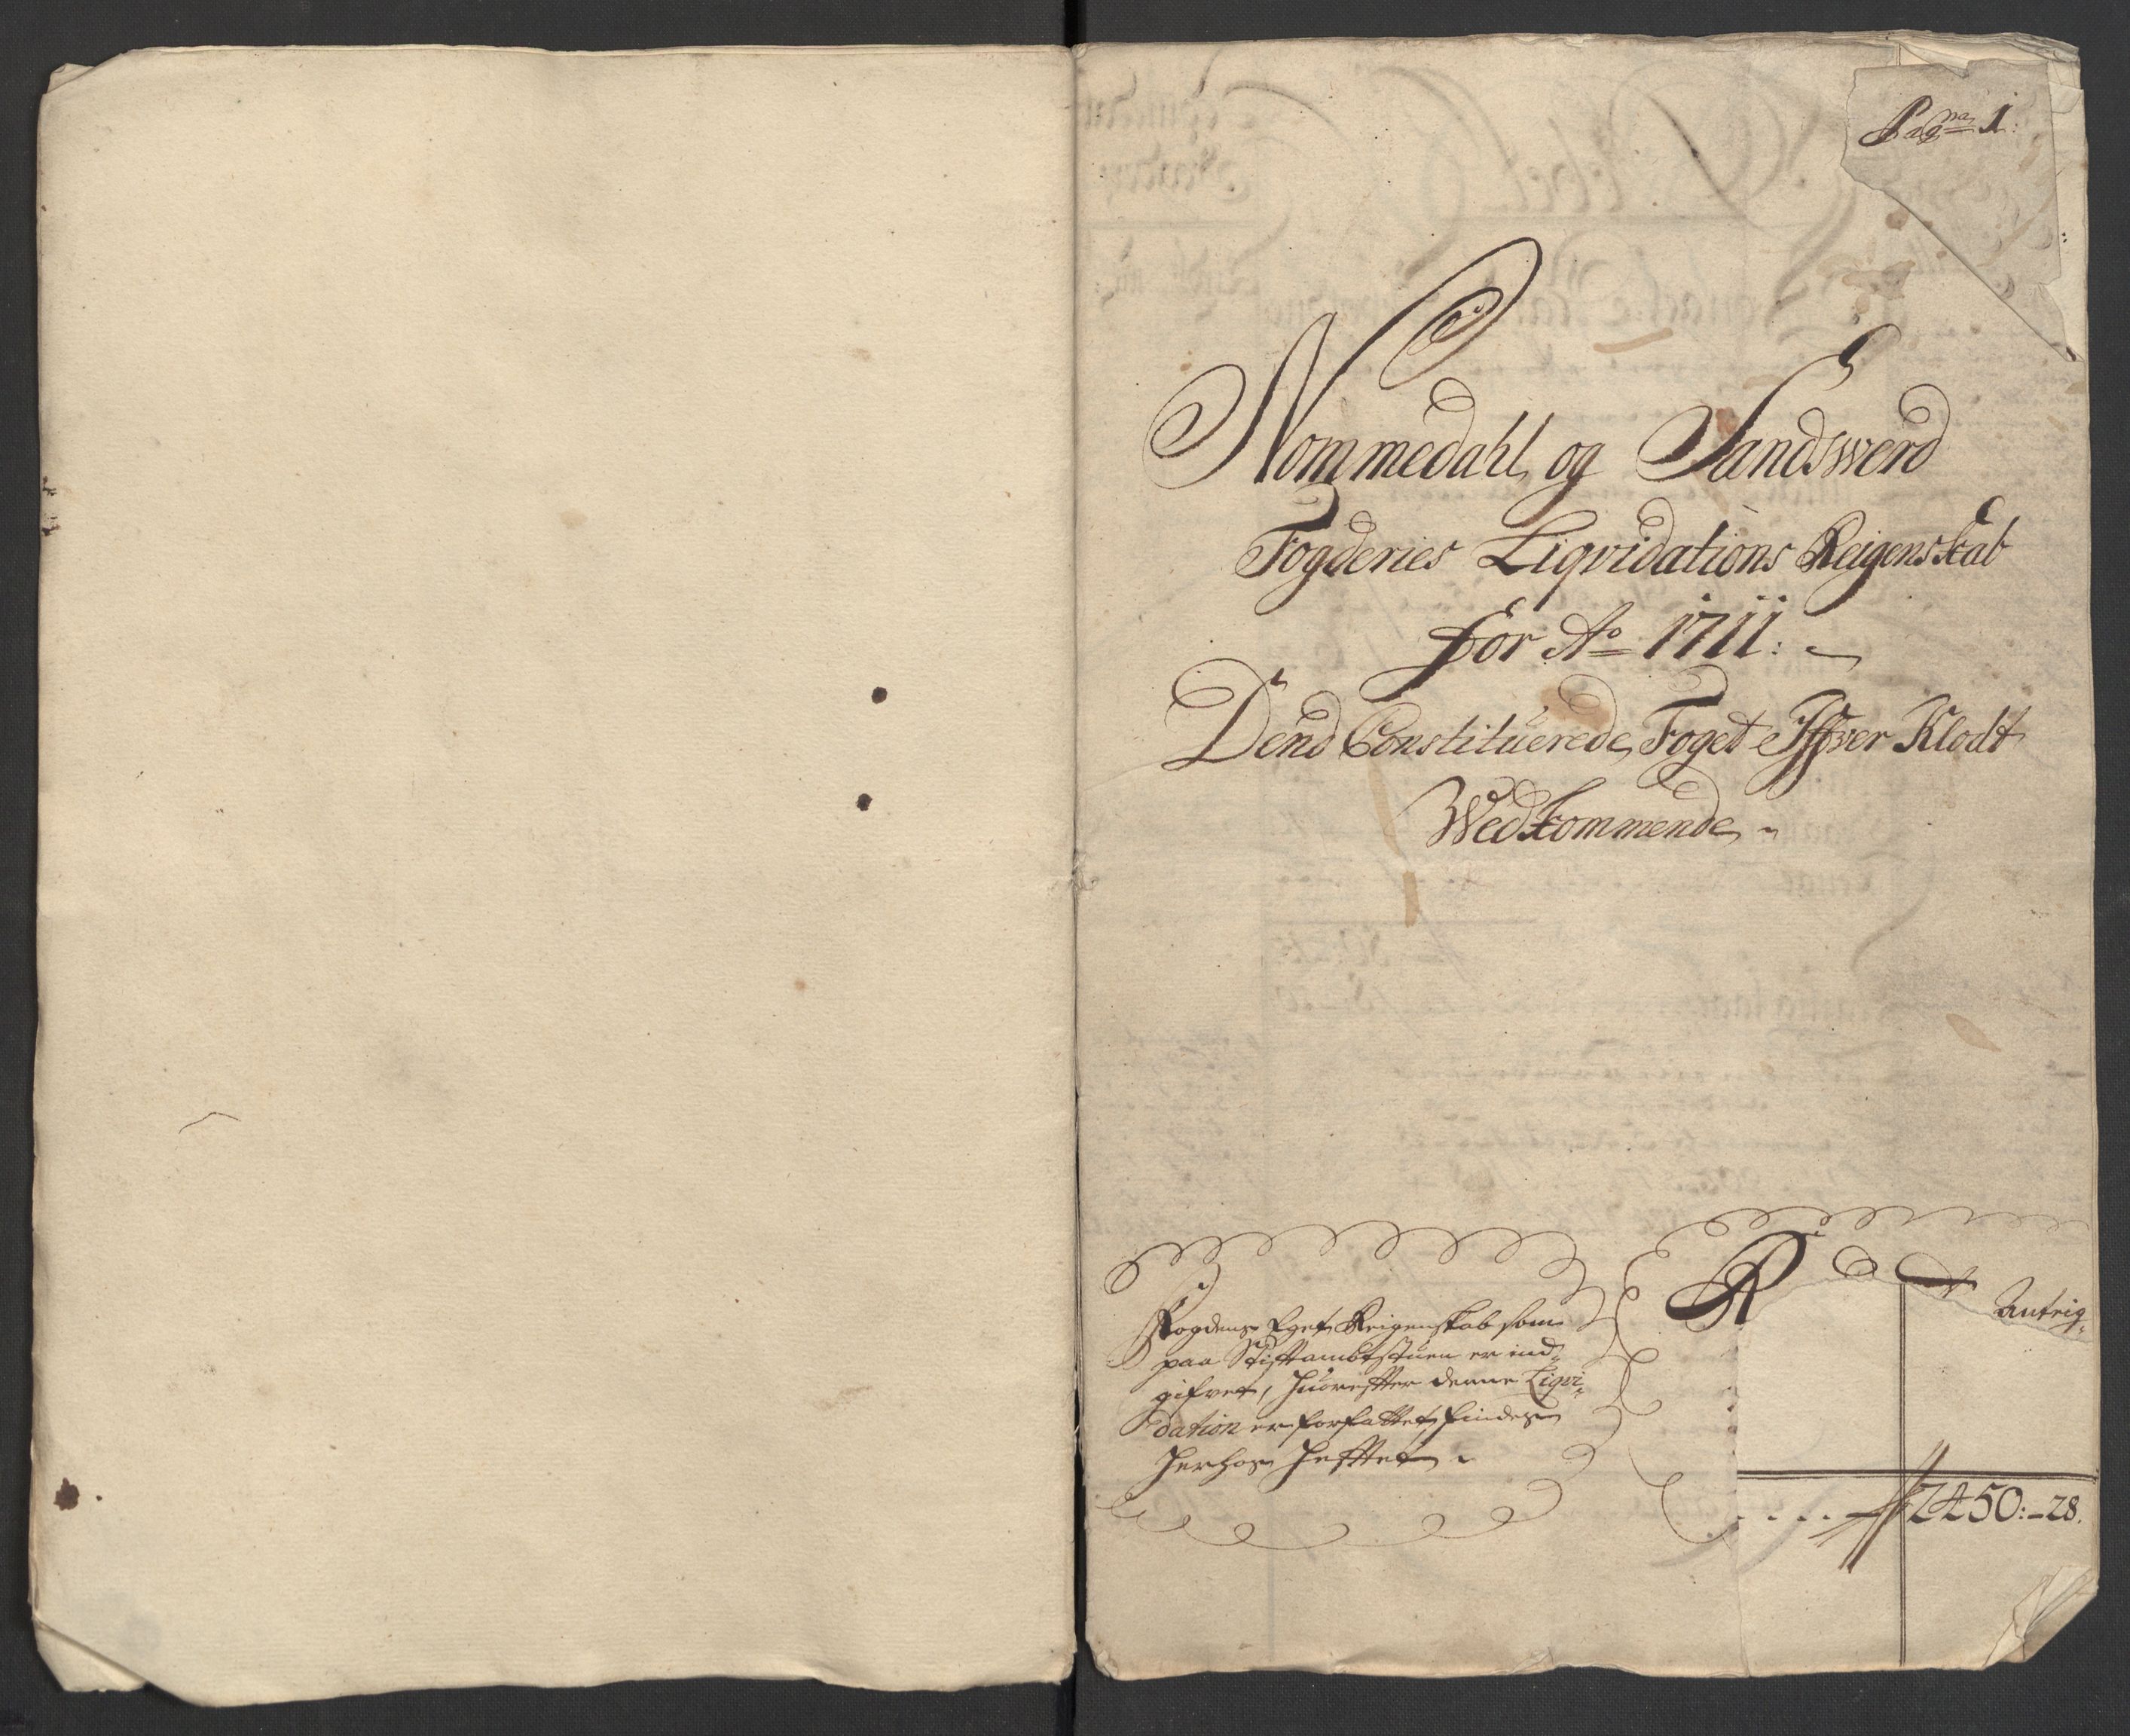 Pag^na 1:
Nommedahl og Sandswerd
Fogderies Liqvidations Reigenskab
for A^o 1711:
Dend Constituerede Foget Iffver Klodt
Wedkommende
Fogdens Eget Reigenskab som
paa Stiftambtstuen er ind-
gifvet, huorefter denne Liqvi-
dation er forfattet, findes
herhos hefftet
R
2450:-28.